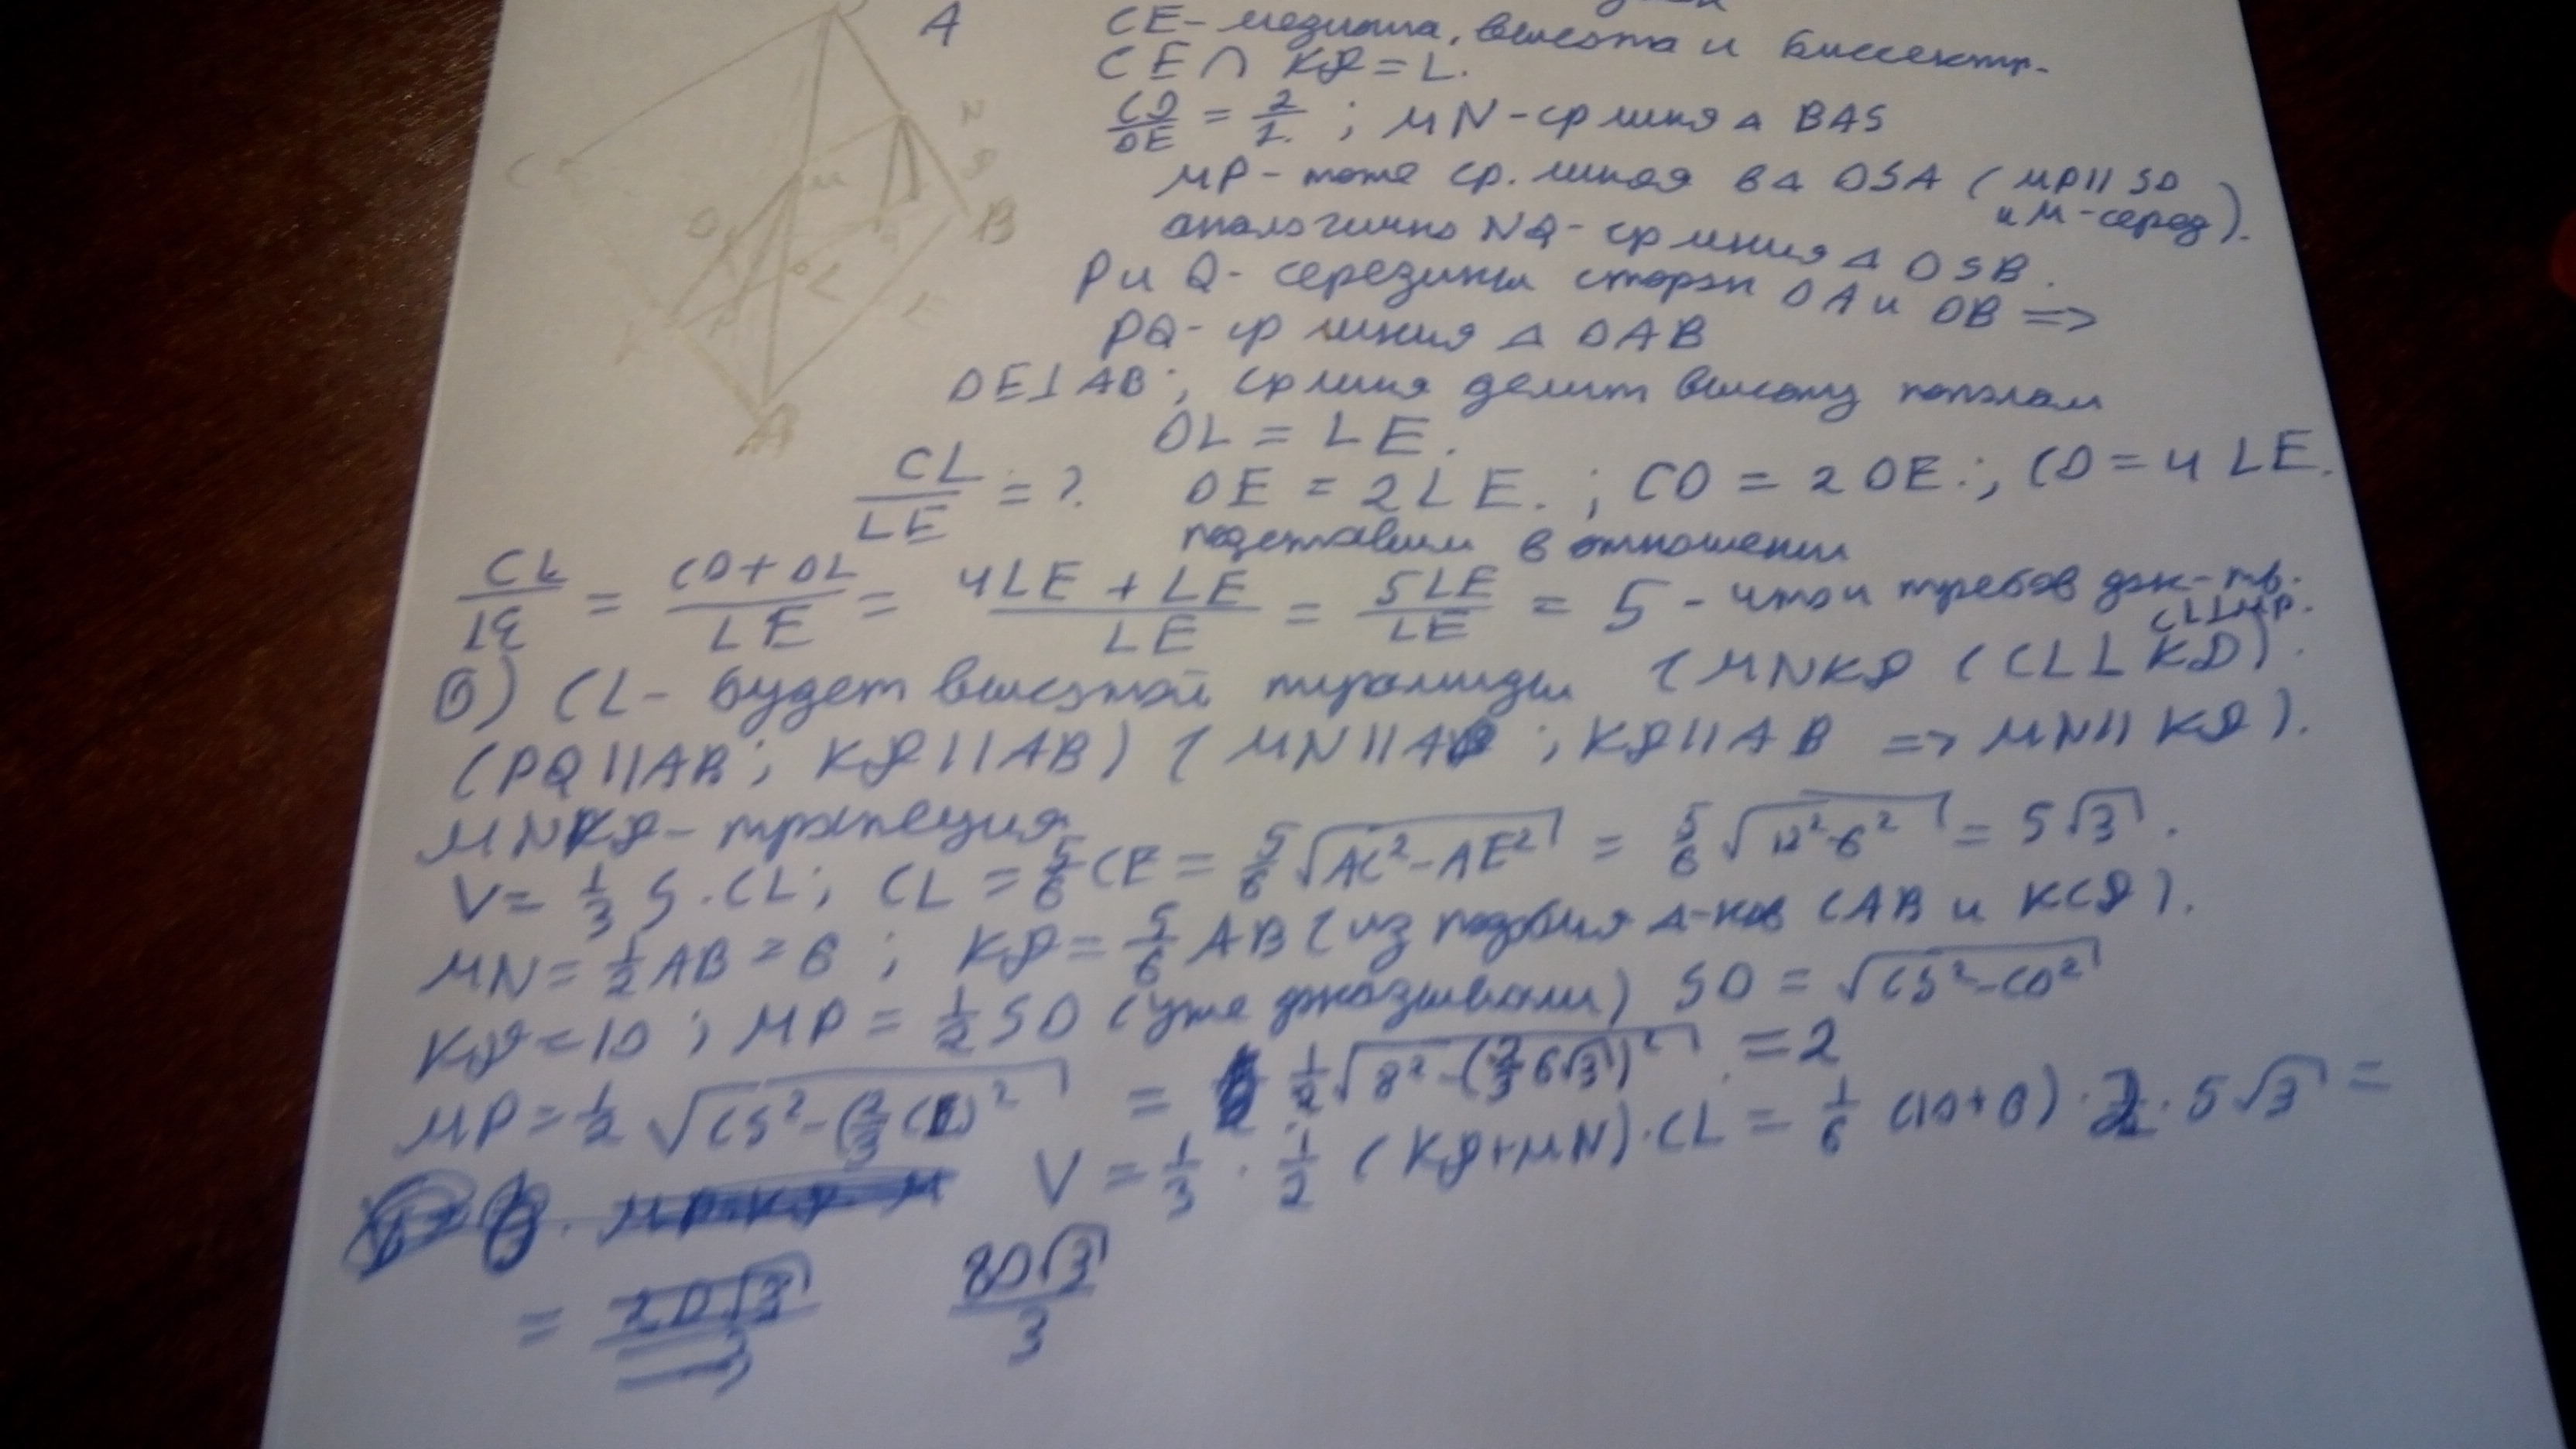 A
CE - медиана, высота и биссектр.
CE ∩ KD = L.
CO/OE = 2/1. ; MN - ср линия Δ BAS
MP - тоже ср. линия в Δ OSA (MP || SO и M - серед).
аналогично NQ - ср линия Δ OSB.
P и Q - середины сторон OA и OB =>
PQ - ср линия Δ OAB
OE ⊥ AB ; ср линия делит высоту пополам
OL = LE.
CL/LE = ? OE = 2LE. ; CO = 2OE. ; CO = 4LE.
подставим в отношении
CL/LE = (CO + OL)/LE = (4LE + LE)/LE = 5LE/LE = 5 - что и требов док-ть.
CL ⊥ MP.
б) CL - будет высотой пирамиды CMNKD (CL ⊥ KD).
(PQ || AB ; KD || AB) (MN || AB ; KD || AB => MN || KD).
MNKD - трапеция
V = 1/3 S · CL ; CL = 5/6 CE = 5/6 √(AC² - AE²) = 5/6 √(12² - 6²) = 5√3.
MN = 1/2 AB = 6 ; KD = 5/6 AB (из подобия Δ-ков CAB и KCD).
KD = 10 ; MP = 1/2 SO (уже доказывали) SO = √(CS² - CO²)
MP = 1/2 √(CS² - (2/3 CE)²) = 1/2 √(8² - (2/3 6√3)²) = 2
V = 1/3 · 1/2 (KD + MN) · CL = 1/6 (10 + 6) · 2 · 5√3 =
= 80√3/3
C
M
N
B
O
L
E
A